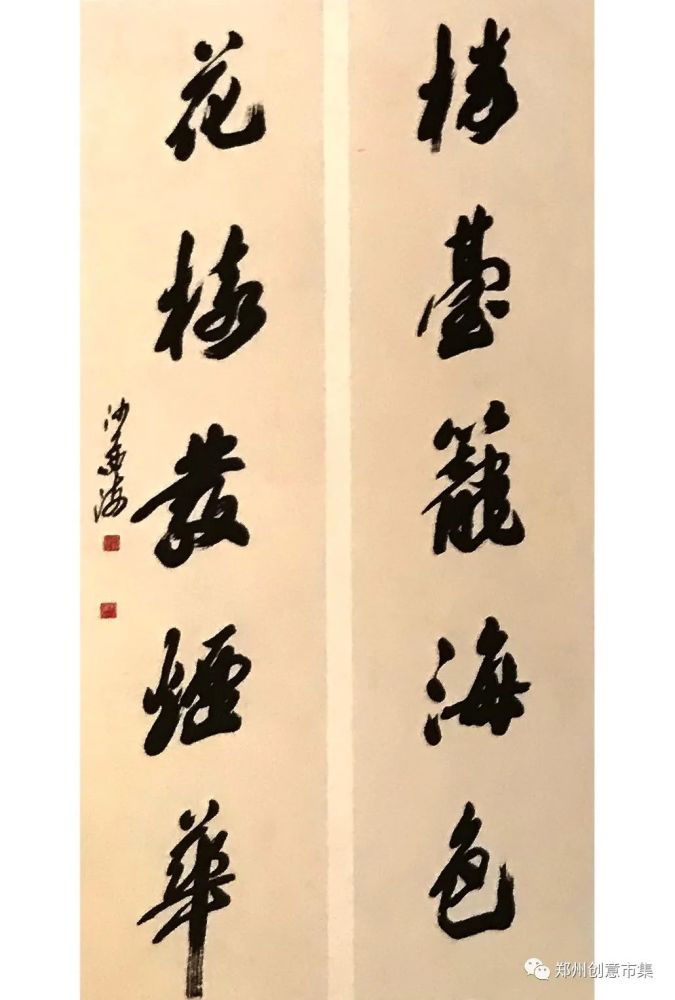 樓臺籠海色
花樹發煙華
沙孟海
郑州创意市集